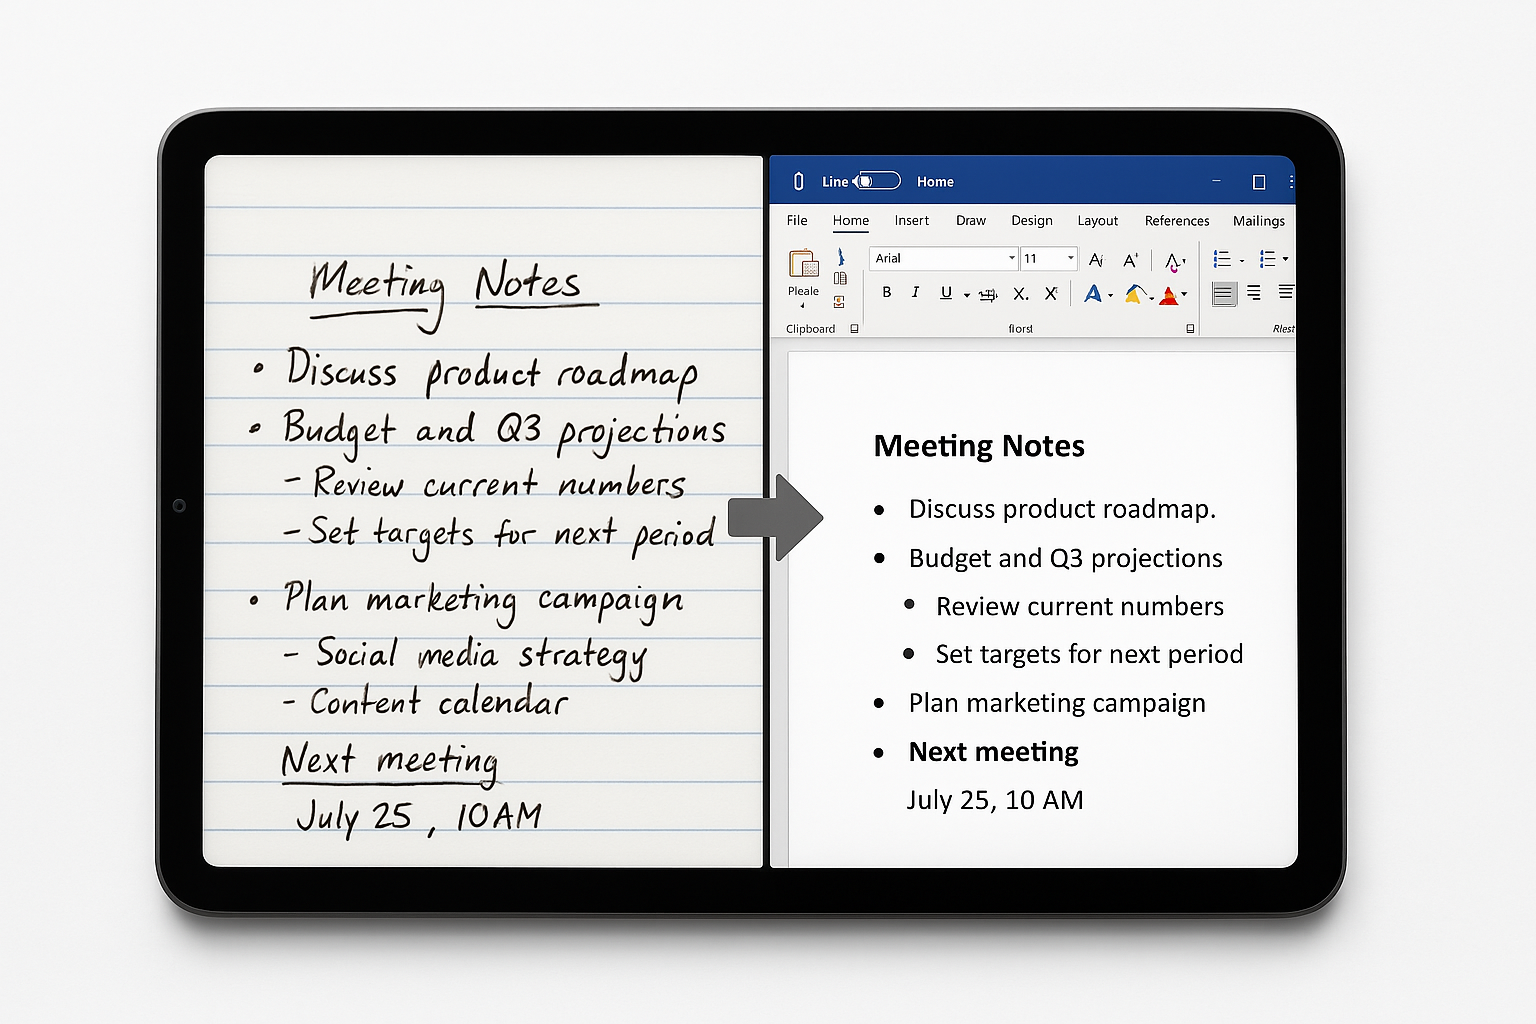 Meeting Notes
• Discuss product roadmap
• Budget and Q3 projections
- Review current numbers
- Set targets for next period
• Plan marketing campaign
- Social media strategy
- Content calendar
Next meeting
July 25, 10AM
Line Home
File Home Insert Draw Design Layout References Mailings
Arial 11
Pleale B I U X. X
Clipboard florst Rlest
Meeting Notes
• Discuss product roadmap.
• Budget and Q3 projections
• Review current numbers
• Set targets for next period
• Plan marketing campaign
• Next meeting
July 25, 10 AM